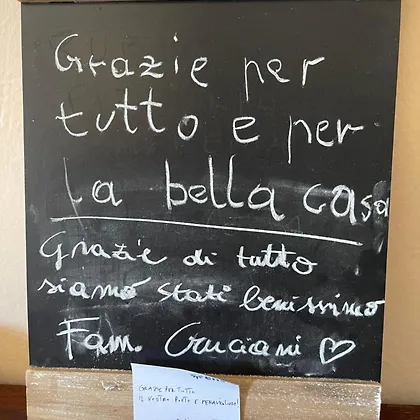 Grazie per
tutto e per
la bella casa
Grazie di tutto
siamo stati benissimo
Fam. Cruciani ♡
GRAZIE PER TUTTO
IL VOSTRO POSTO È MERAVIGLIOSO!